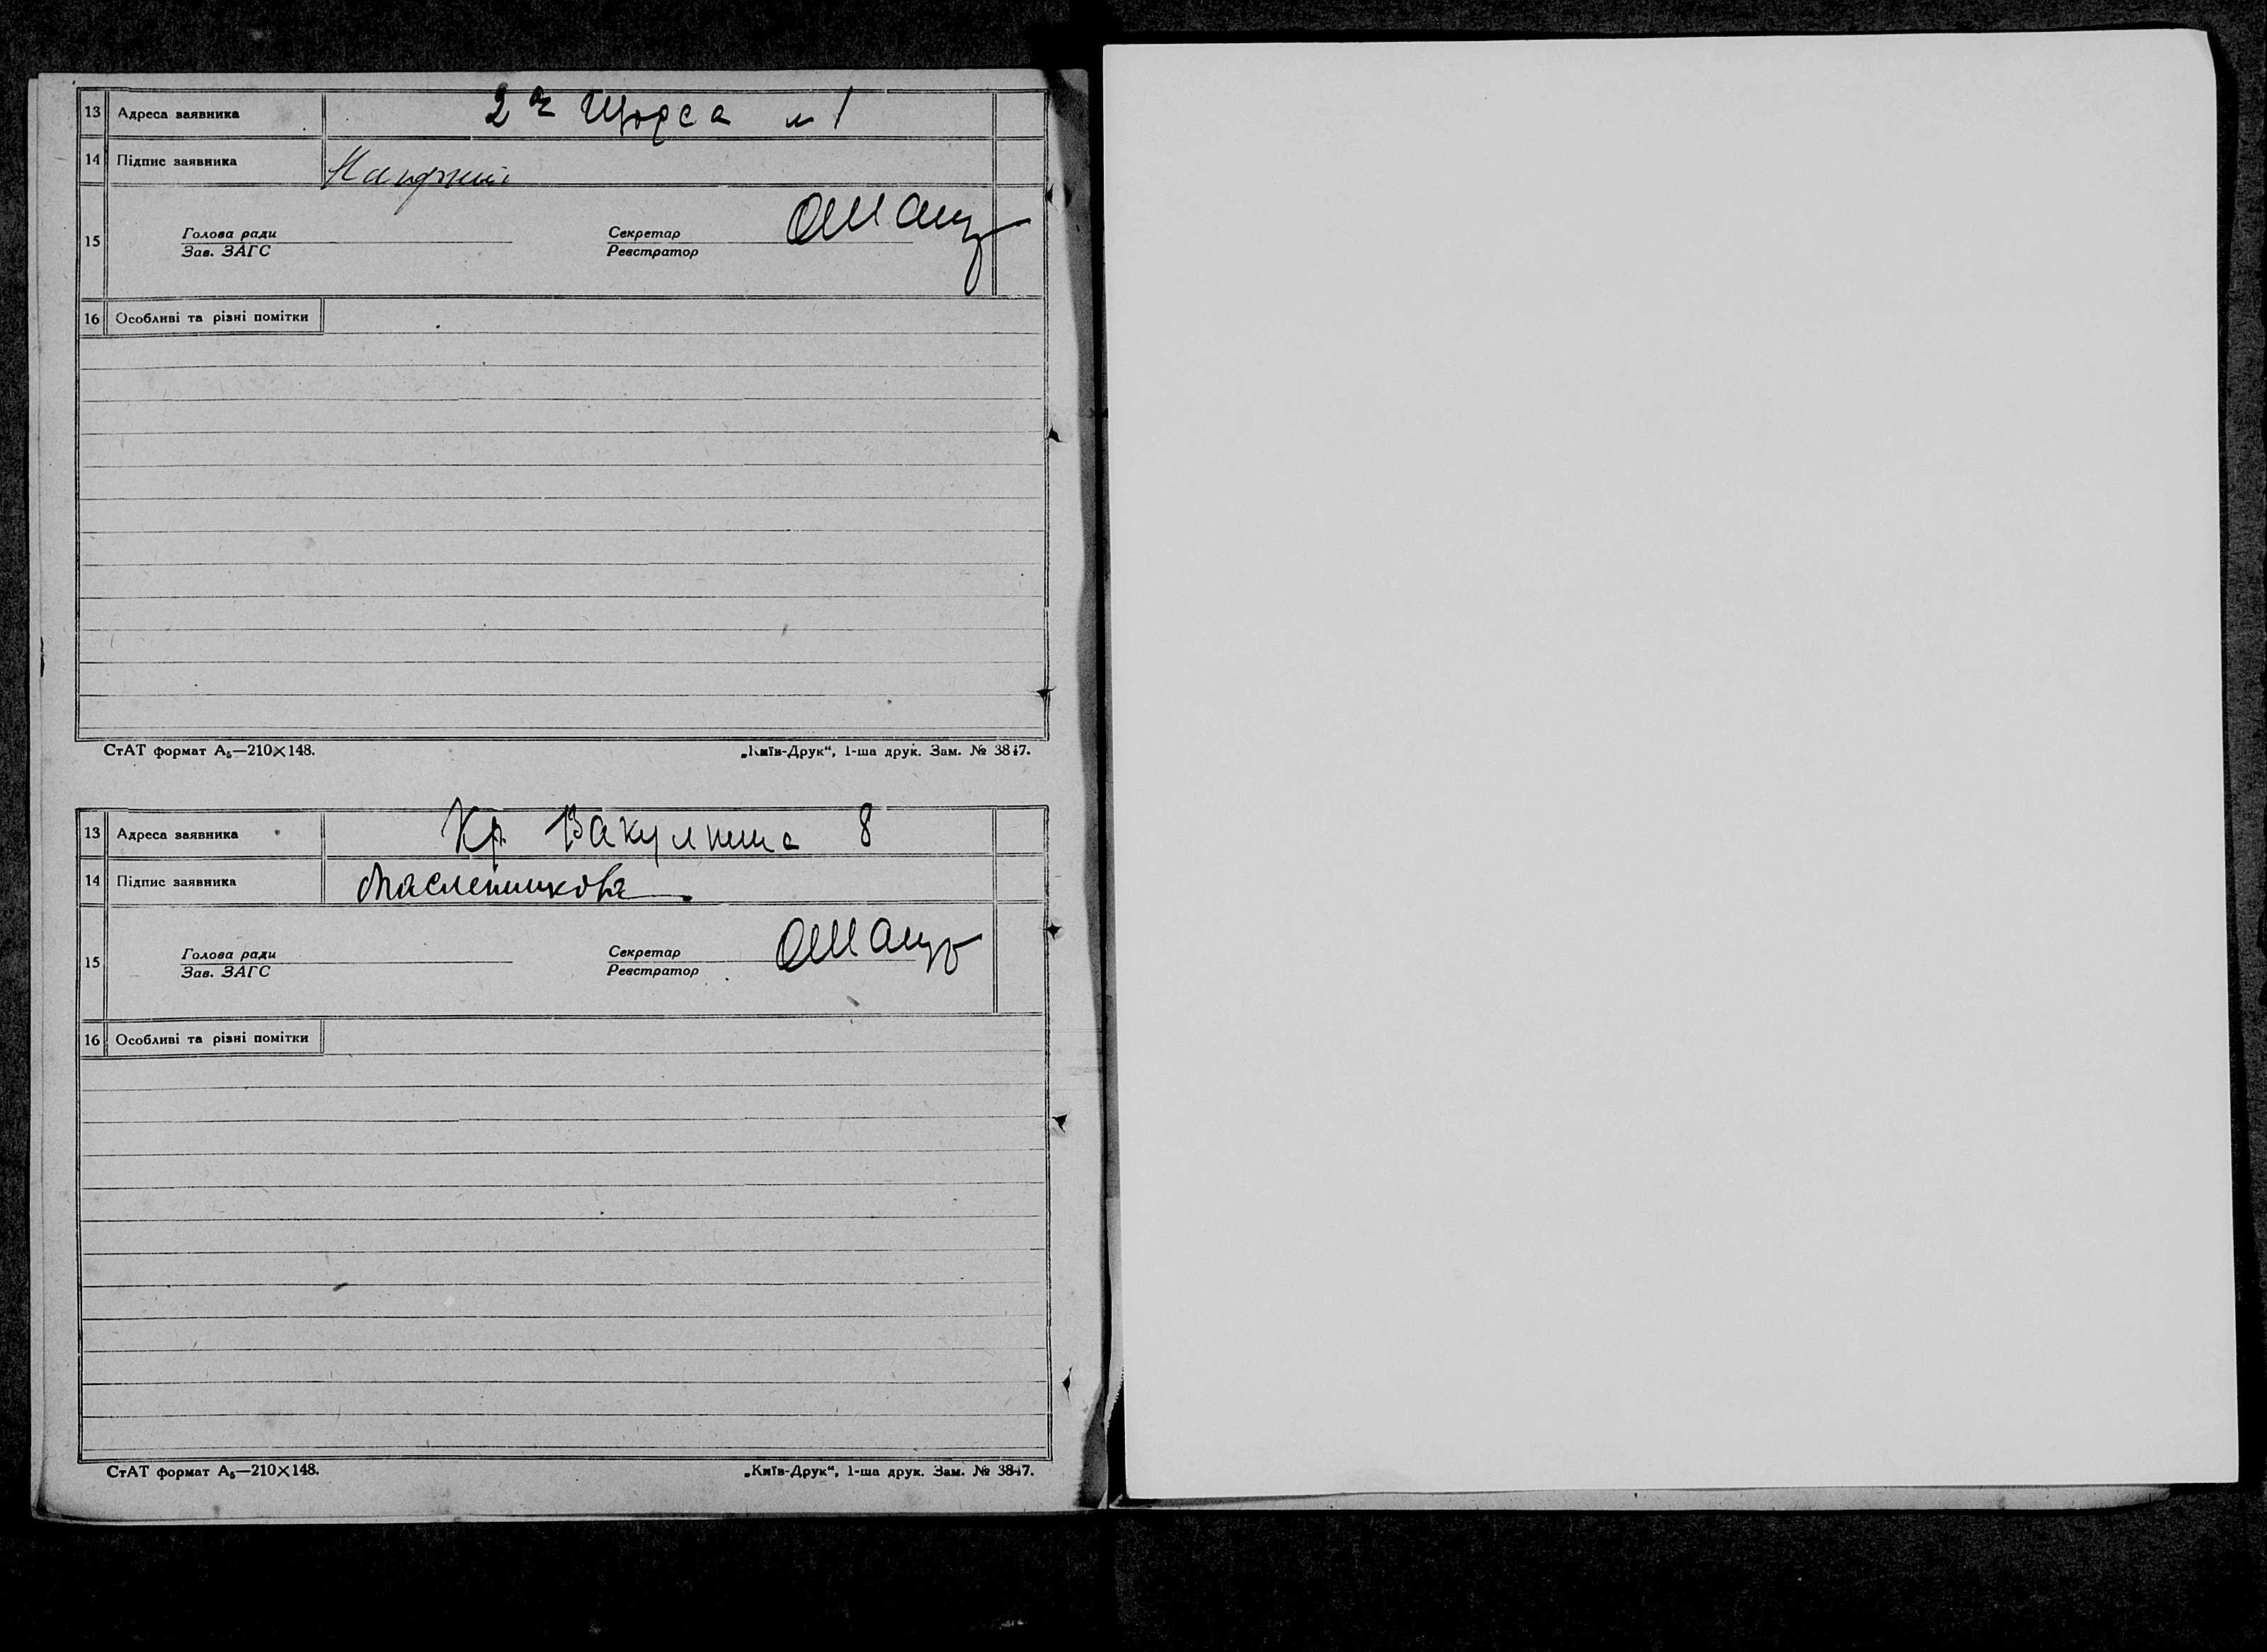 13 Адреса заявника 2ая Щорса № 1
14 Підпис заявника
15 Голова ради Секретар
Зав. ЗАГС Реєстратор
16 Особливі та різні помітки
СтАТ формат А₅—210×148. „Київ-Друк“, 1-ша друк. Зам. № 3847.
13 Адреса заявника Кр 8
14 Підпис заявника Масленникова
15 Голова ради Секретар
Зав. ЗАГС Реєстратор
16 Особливі та різні помітки
СтАТ формат А₅—210×148. „Київ-Друк“, 1-ша друк. Зам. № 3847.